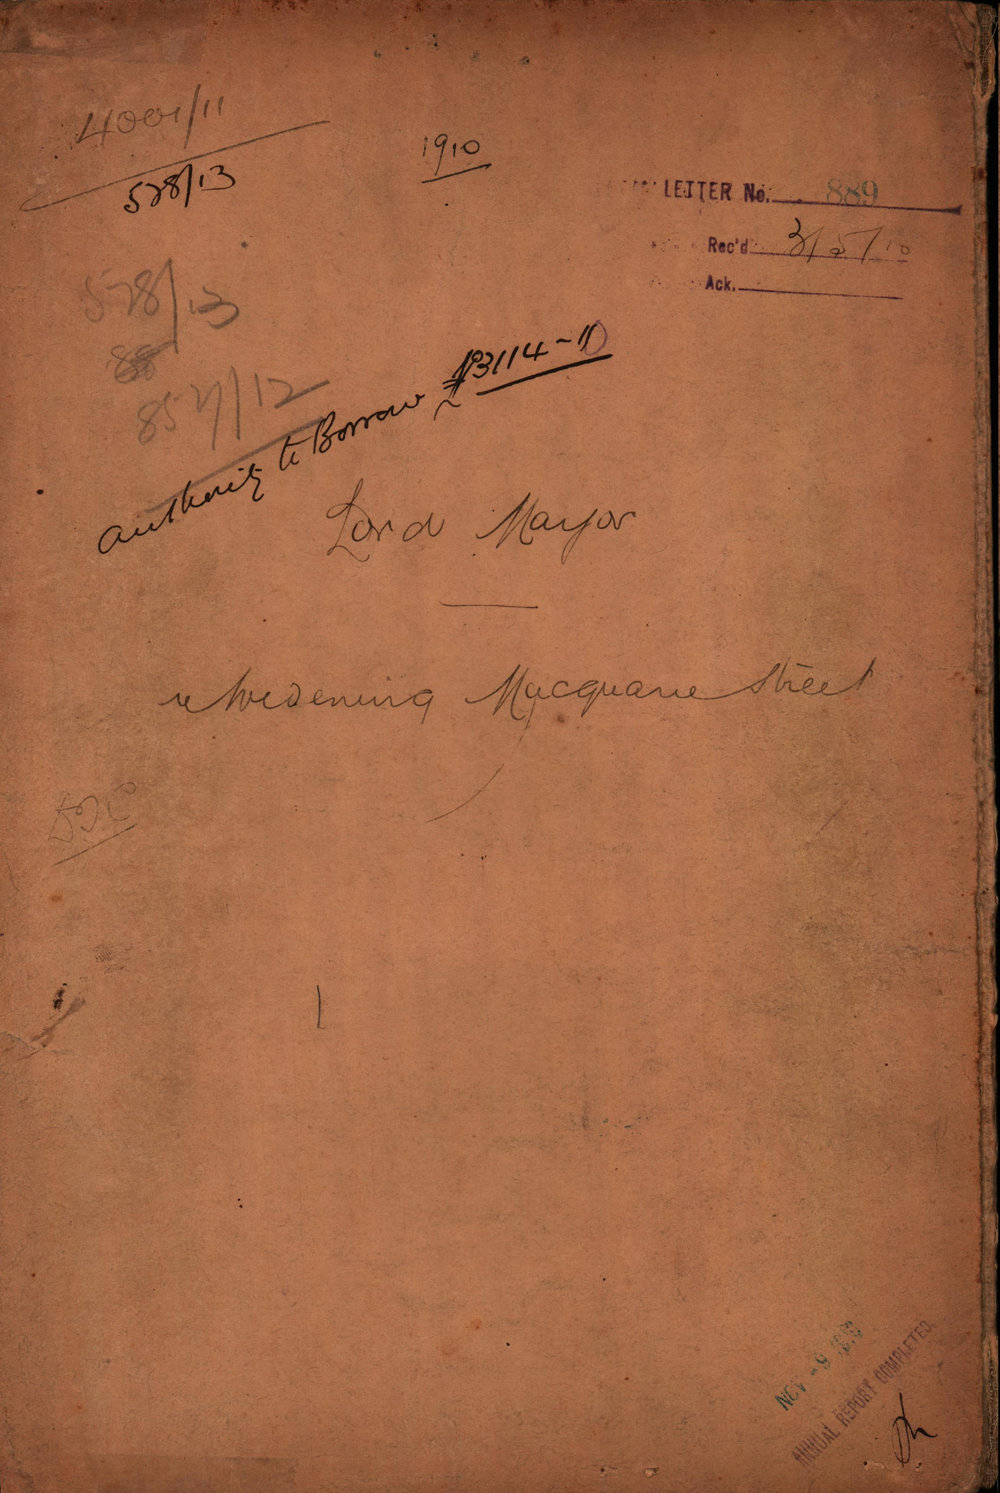 4001/11
528/13
1910
LETTER No. 889
Rec'd 3/5/10
Ack.
528/13
857/12
Authority to Borrow 3114-11
Lord Mayor
re Widening Macquarie Street
NOV -9
ANNUAL REPORT COMPLETED